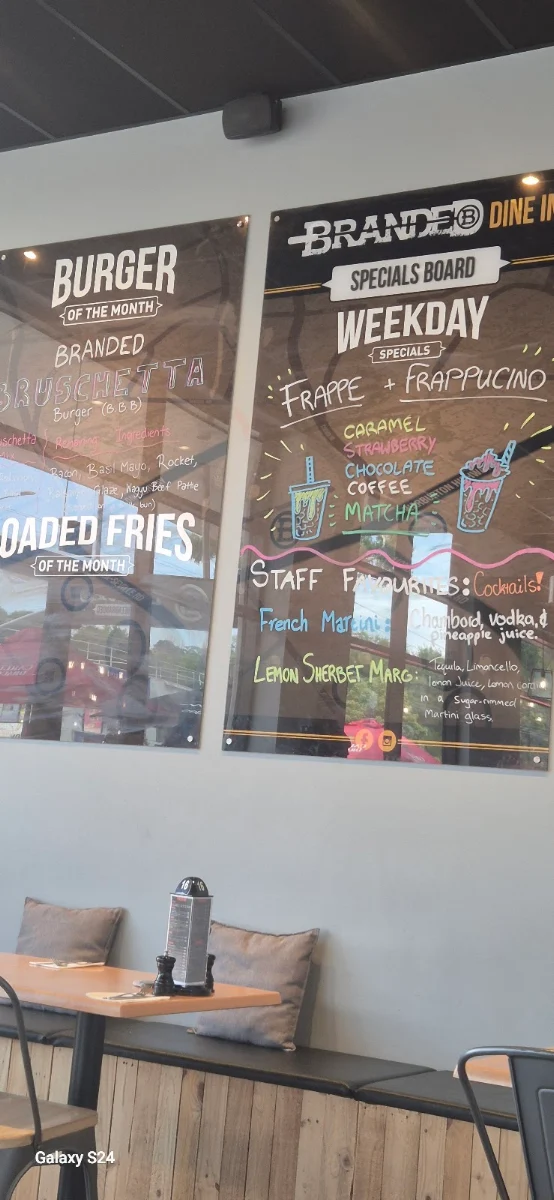 BURGER
OF THE MONTH
BRANDED
BRUSCHETTA
Burger (B B B)
Ingredients
Bacon, Basil Mayo, Rocket,
Glaze, Wagyu Beef Patte
LOADED FRIES
OF THE MONTH
BRANDED B DINE IN
SPECIALS BOARD
WEEKDAY
SPECIALS
FRAPPE + FRAPPUCINO
CARAMEL
STRAWBERRY
CHOCOLATE
COFFEE
MATCHA
STAFF FAVOURITES: Cocktails!
French Martini: Chambord, Vodka, &
pineapple juice.
LEMON SHERBET MARG: Tequila, Limoncello,
lemon Juice, Lemon
in a Sugar-rimmed
Martini glass.
Galaxy S24